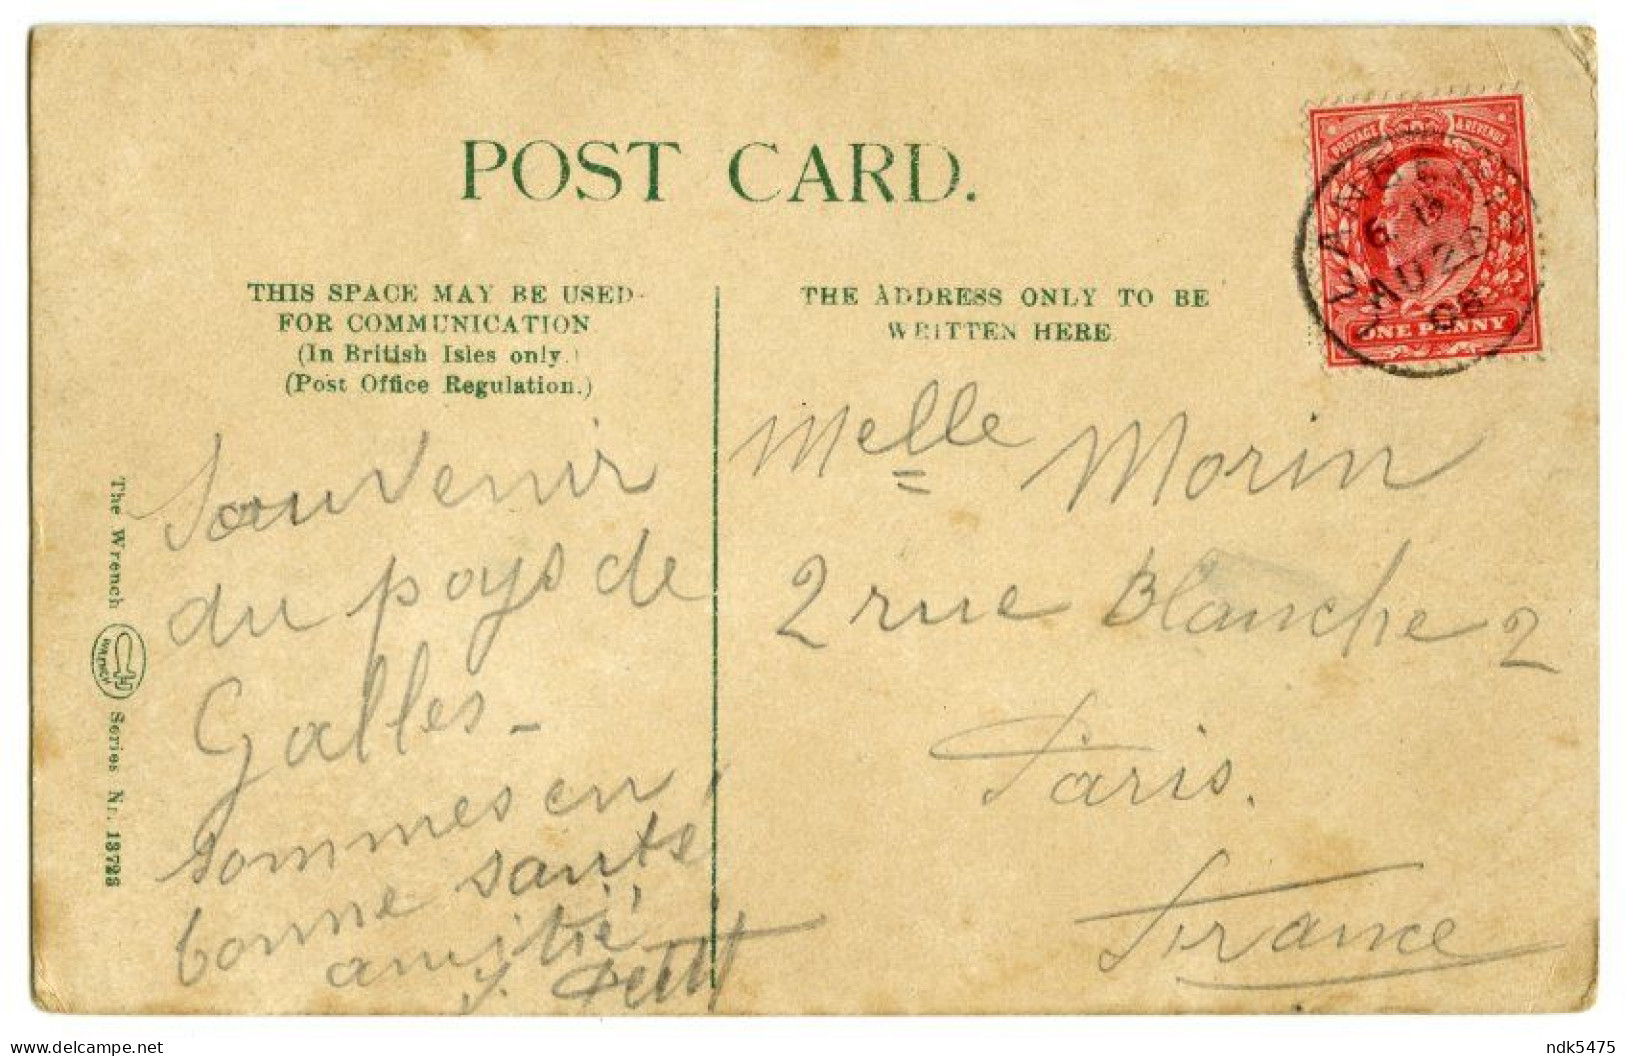 POST CARD.
POSTAGE & REVENUE
6. 15
AU 26
08
ONE PENNY
THIS SPACE MAY BE USED
FOR COMMUNICATION
(In British Isles only.)
(Post Office Regulation.)
THE ADDRESS ONLY TO BE
WRITTEN HERE
Souvenir
du pays de
Galles -
sommes en
bonne santé
amitié
Petit
Melle Morin
2 rue Blanche 2
Paris.
France
The Wrench
WRENCH
Series Nr. 13728
delcampe.net
ndk5475